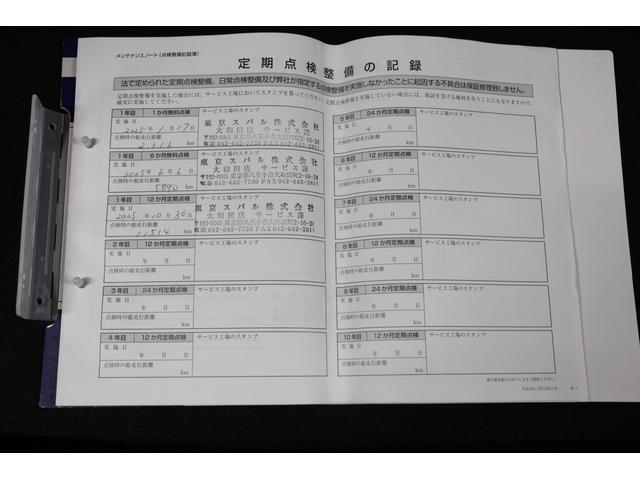 メンテナンスノート（点検整備記録簿）
定期点検整備の記録
法で定められた定期点検整備、日常点検整備及び弊社が指定する点検整備を実施しなかったことに起因する不具合は保証修理致しません。
定期点検整備を実施した場合には、サービス工場においてスタンプを貰ってください。定期点検整備を実施していない場合には、保証を受ける権利を失うこともありますので、
確実に実施してください。
1年目 1か月無料点検 サービス工場のスタンプ
実施日
2025年1月17日
点検時の総走行距離
2112 km
東京スバル株式会社
大和田店 サービス課
〒192-0045 東京都八王子市大和田町2-16-24
電話 042-642-7730 FAX 042-642-2811
1年目 6か月無料点検 サービス工場のスタンプ
実施日
2025年6月6日
点検時の総走行距離
5890 km
東京スバル株式会社
大和田店 サービス課
〒192-0045 東京都八王子市大和田町2-16-24
電話 042-642-7730 FAX 042-642-2811
1年目 12か月定期点検 サービス工場のスタンプ
実施日
2025年10月30日
点検時の総走行距離
11514 km
東京スバル株式会社
大和田店 サービス課
〒192-0045 東京都八王子市大和田町2-16-24
電話 042-642-7730 FAX 042-642-2811
2年目 24か月定期点検 サービス工場のスタンプ
実施日
年 月 日
点検時の総走行距離
km
3年目 24か月定期点検 サービス工場のスタンプ
実施日
年 月 日
点検時の総走行距離
km
4年目 12か月定期点検 サービス工場のスタンプ
実施日
年 月 日
点検時の総走行距離
km
5年目 24か月定期点検 サービス工場のスタンプ
実施日
年 月 日
点検時の総走行距離
km
6年目 12か月定期点検 サービス工場のスタンプ
実施日
年 月 日
点検時の総走行距離
km
7年目 24か月定期点検 サービス工場のスタンプ
実施日
年 月 日
点検時の総走行距離
km
8年目 12か月定期点検 サービス工場のスタンプ
実施日
年 月 日
点検時の総走行距離
km
9年目 24か月定期点検 サービス工場のスタンプ
実施日
年 月 日
点検時の総走行距離
km
10年目 12か月定期点検 サービス工場のスタンプ
実施日
年 月 日
点検時の総走行距離
km